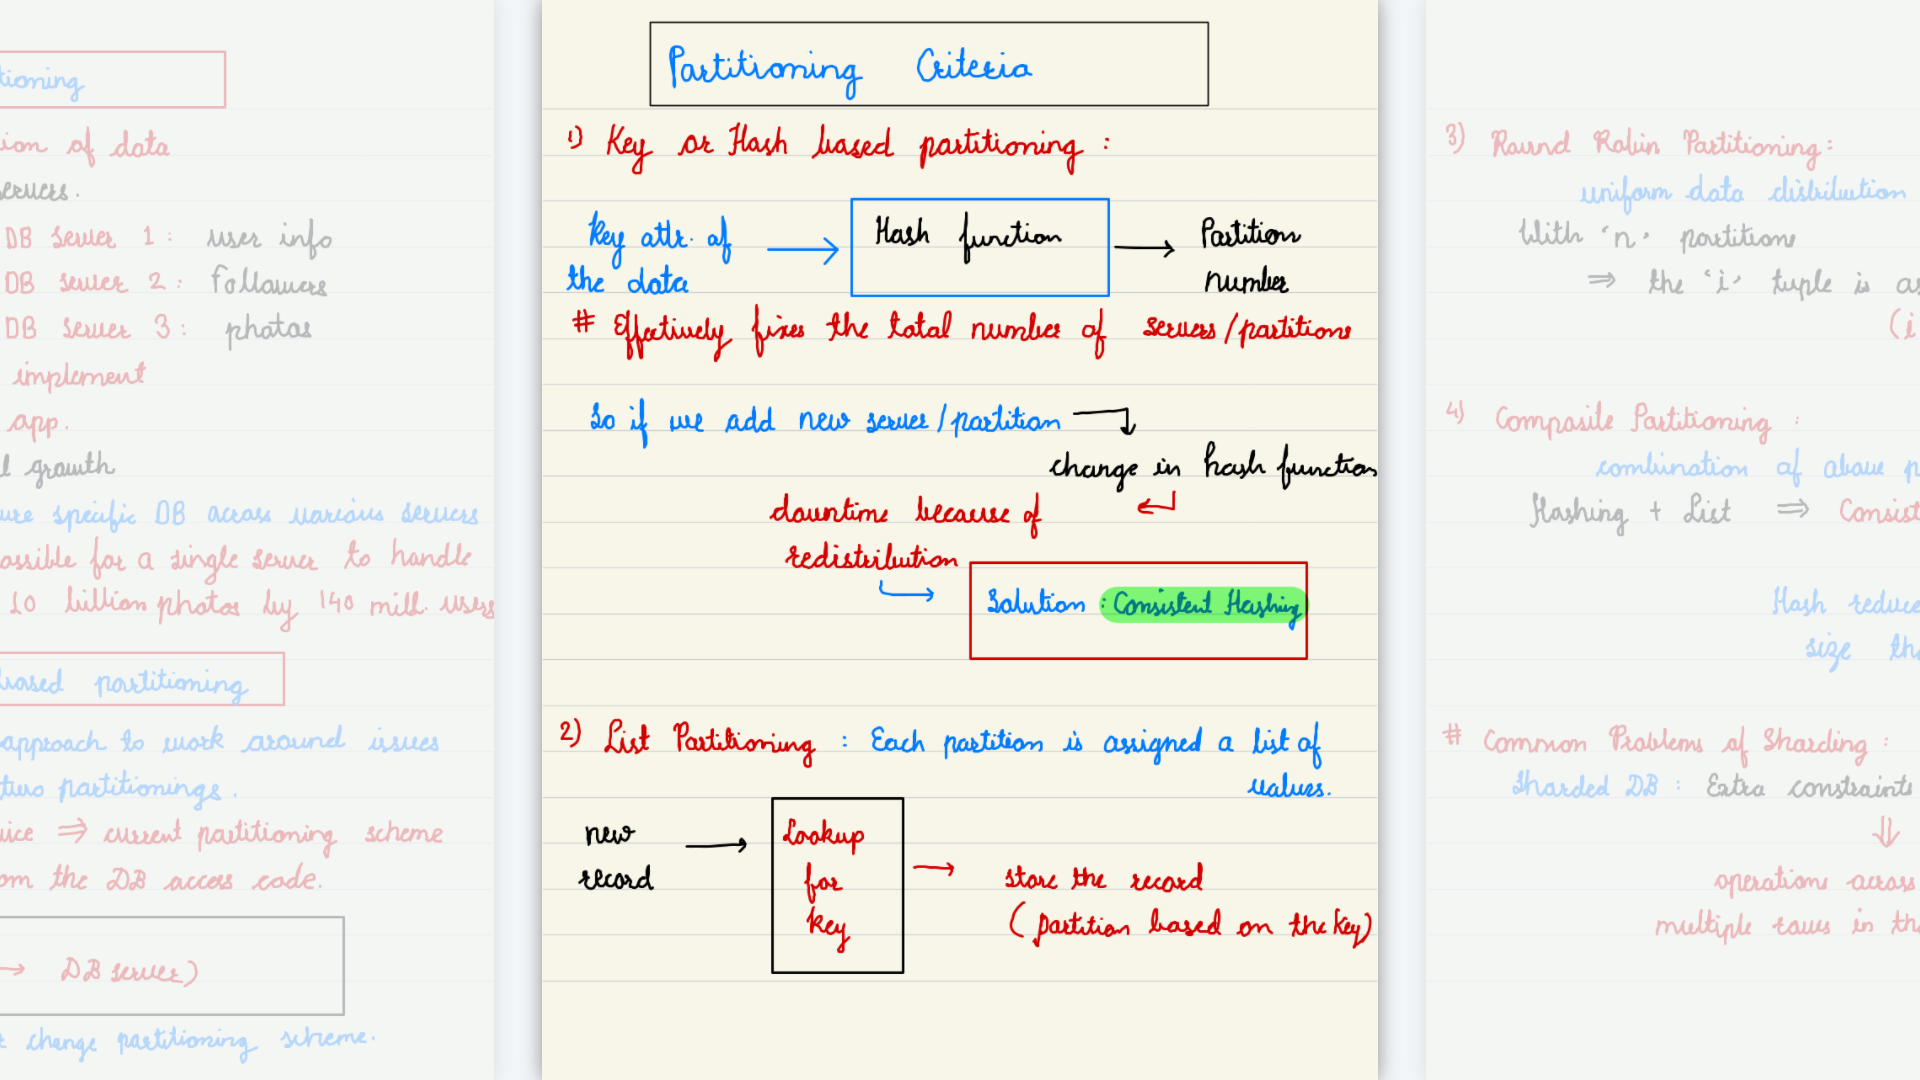 tioning
ion of data
servers.
DB server 1: user info
DB server 2: followers
DB server 3: photos
implement
app.
l growth
ure specific DB across various servers
ossible for a single server to handle
10 billion photos by 140 mill. users
based partitioning
approach to work around issues
two partitionings.
vice ⇒ current partitioning scheme
om the DB access code.
→ DB server)
change partitioning scheme.
Partitioning Criteria
1) Key or Hash based partitioning:
key attr. of → Hash function → Partition
the data number
# Effectively fixes the total number of servers/partitions
So if we add new server/partition
change in hash function
downtime because of
redistribution
Solution: Consistent Hashing
2) List Partitioning: Each partition is assigned a list of
values.
new → Lookup
record for → store the record
key (partition based on the key)
3) Round Robin Partitioning:
uniform data distribution
With 'n' partitions
⇒ the 'i' tuple is as
(i
4) Composite Partitioning:
combination of above p
Hashing + List ⇒ Consist
Hash reduce
size the
# Common Problems of Sharding:
Sharded DB: Extra constraints
⇓
operations across
multiple rows in th